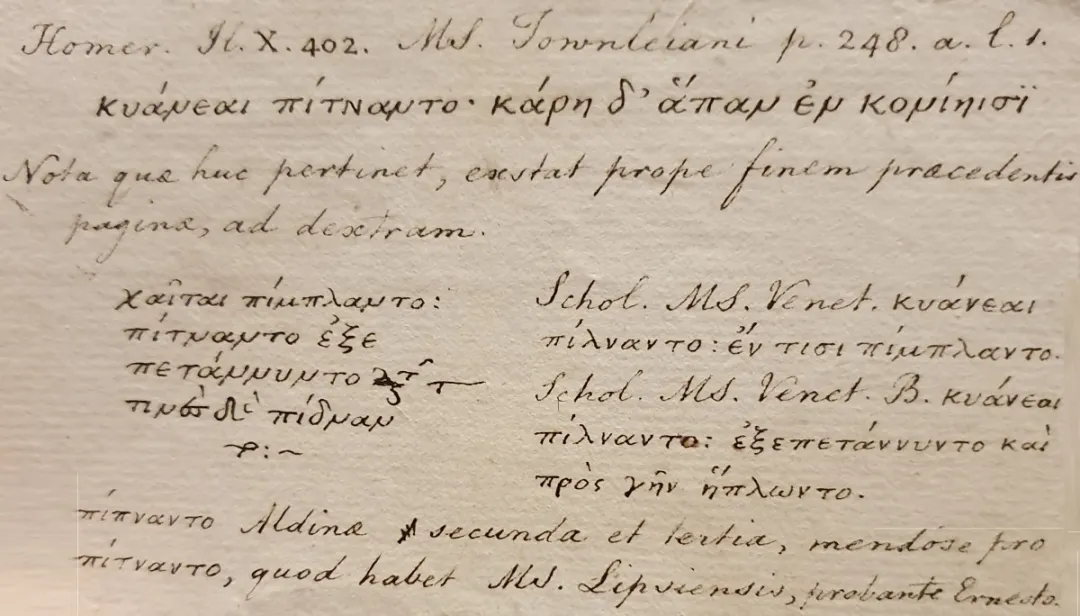 Homer. Il. X. 402. MS. Townleiani p. 248. a. l. 1.
κυάνεαι πίτναντο· κάρη δ’ ἅπαν ἐν κονίηισϊ
Nota quæ huc pertinet, exstat prope finem præcedentis
paginæ, ad dextram.
χαῖται πίμπλαντο:
πίτναντο ἐξε
πετάννυντο
δὲ πίδναν
Schol. MS. Venet. κυάνεαι
πίλναντο: ἔν τισι πίμπλαντο.
Schol. MS. Venet. B. κυάνεαι
πίλναντο: ἐξεπετάννυντο καὶ
πρὸς γῆν ἥπλωντο.
πίπναντο Aldinæ secunda et tertia, mendóse pro
πίτναντο, quod habet MS. Lipsiensis, probante Ernesto.